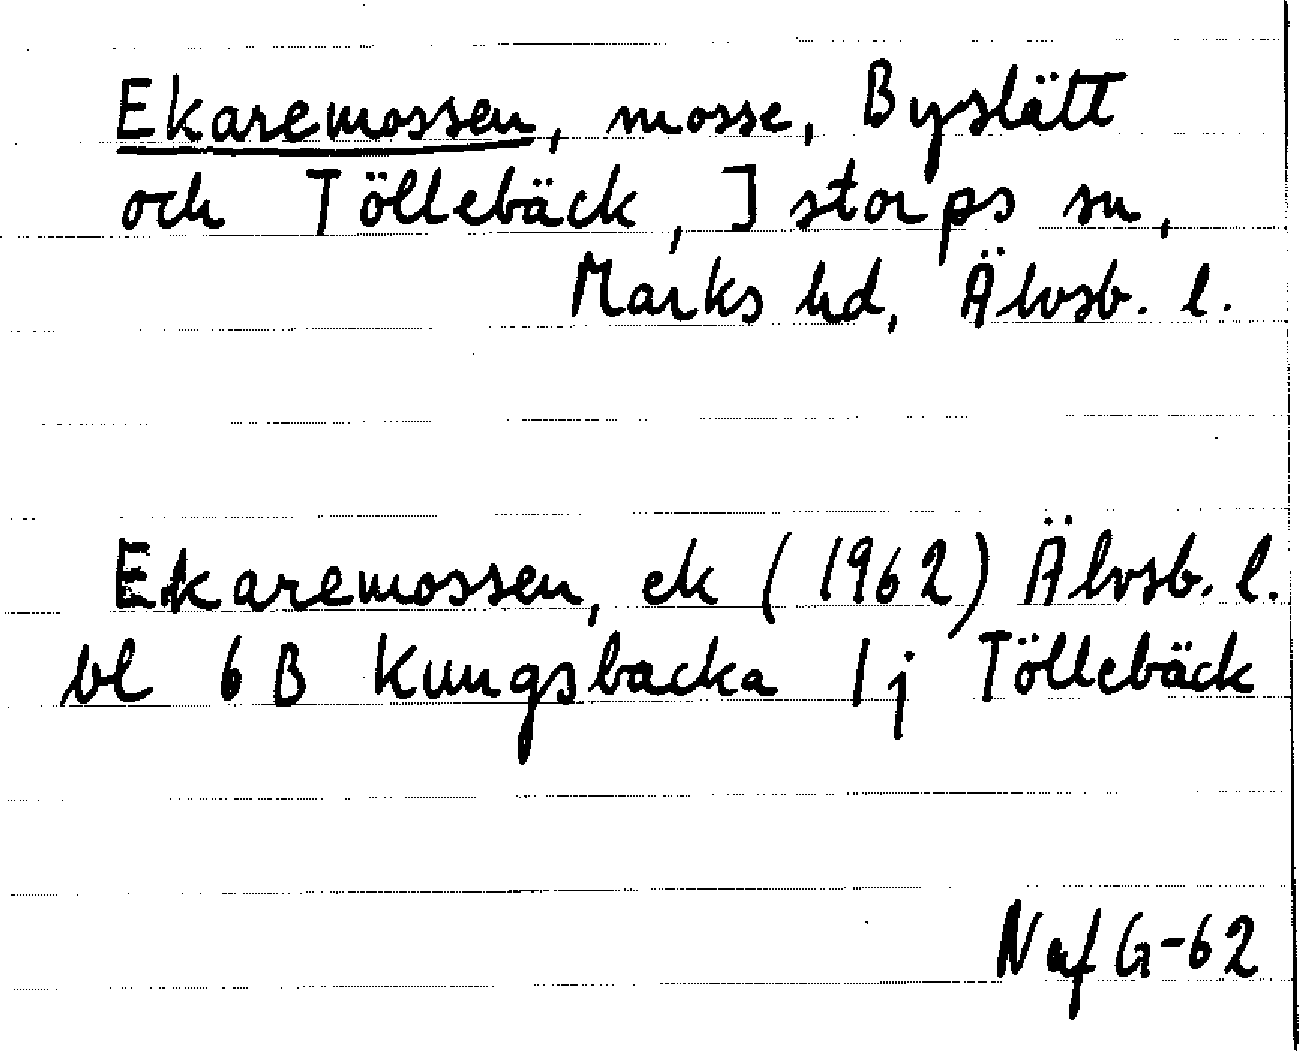 Ekaremossen, mosse, Byslätt
och Töllebäck, Istorps sn,
Marks hd, Älvsb. l.
Ekaremossen, ek (1962) Älvsb. l.
bl 6 B Kungsbacka 1j Töllebäck
N af G-62